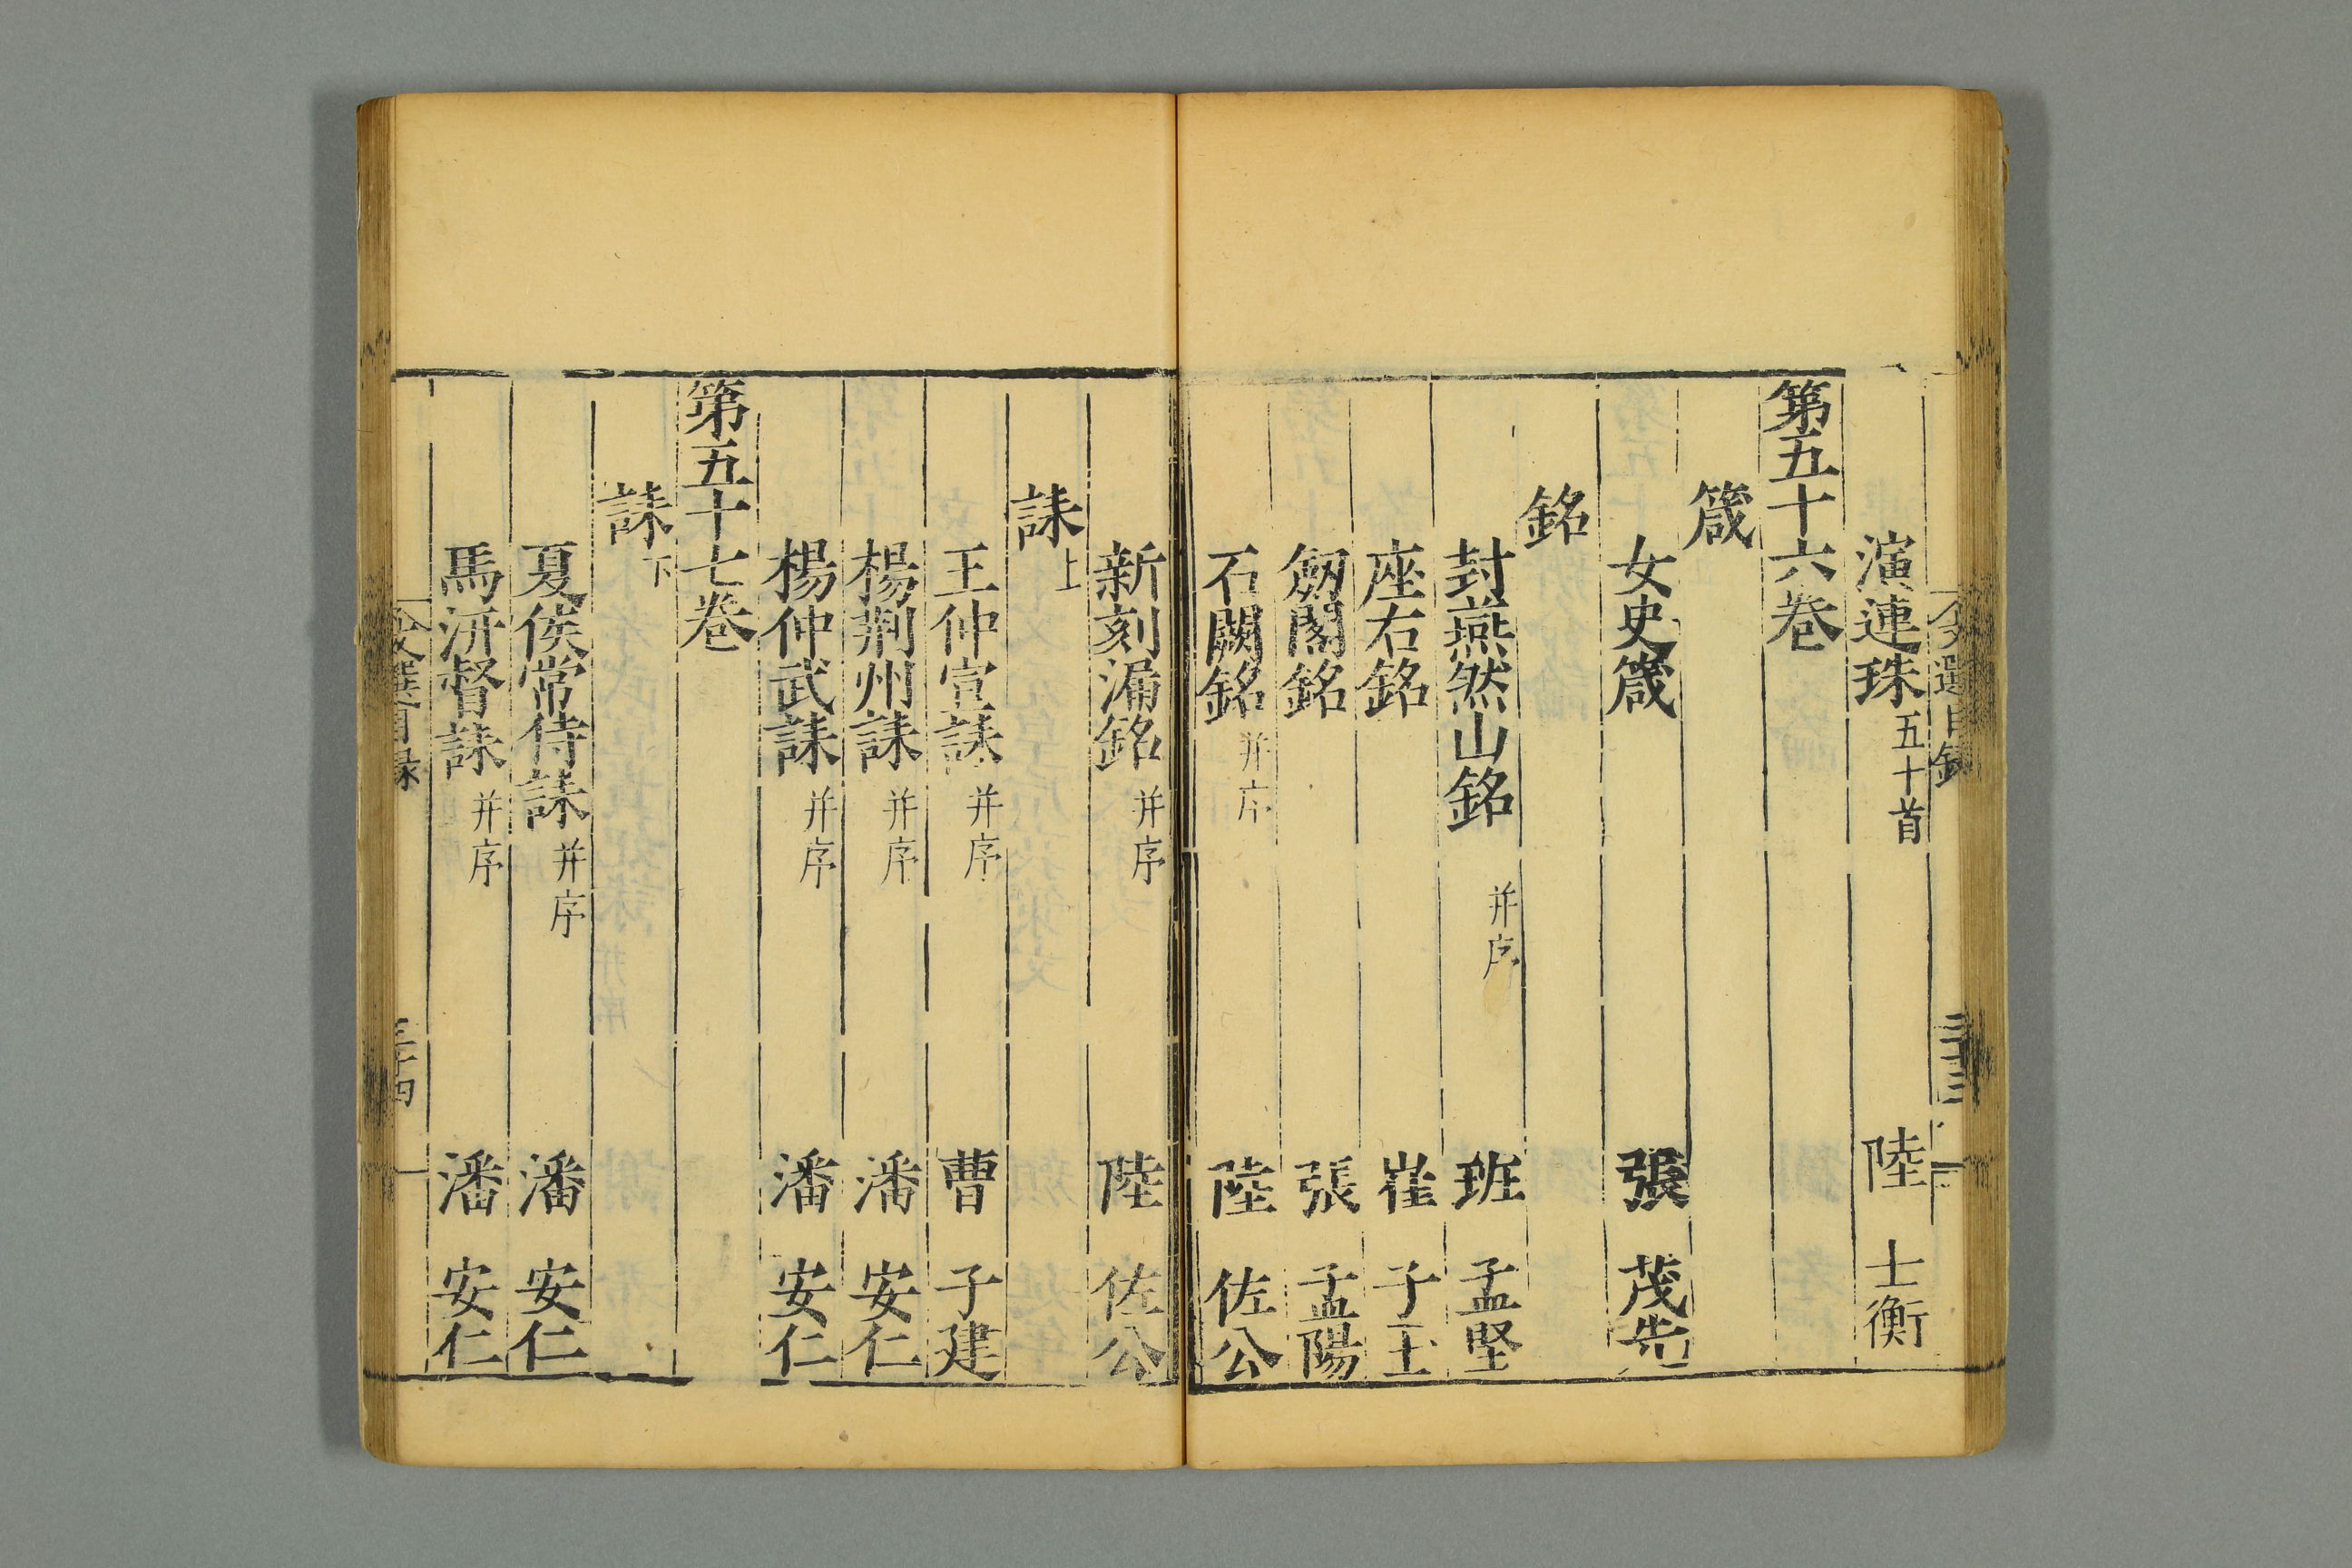 文選目錄
三十三
演連珠五十首 陸士衡
第五十六巻
箴
女史箴 張茂先
銘
封燕然山銘并序 班孟堅
座右銘 崔子玉
劒閣銘 張孟陽
石闕銘并序 陸佐公
新刻漏銘并序 陸佐公
誄上
王仲宣誄并序 曹子建
楊荆州誄并序 潘安仁
楊仲武誄并序 潘安仁
第五十七巻
誄下
夏侯常侍誄并序 潘安仁
馬汧督誄并序 潘安仁
文選目録
三十四